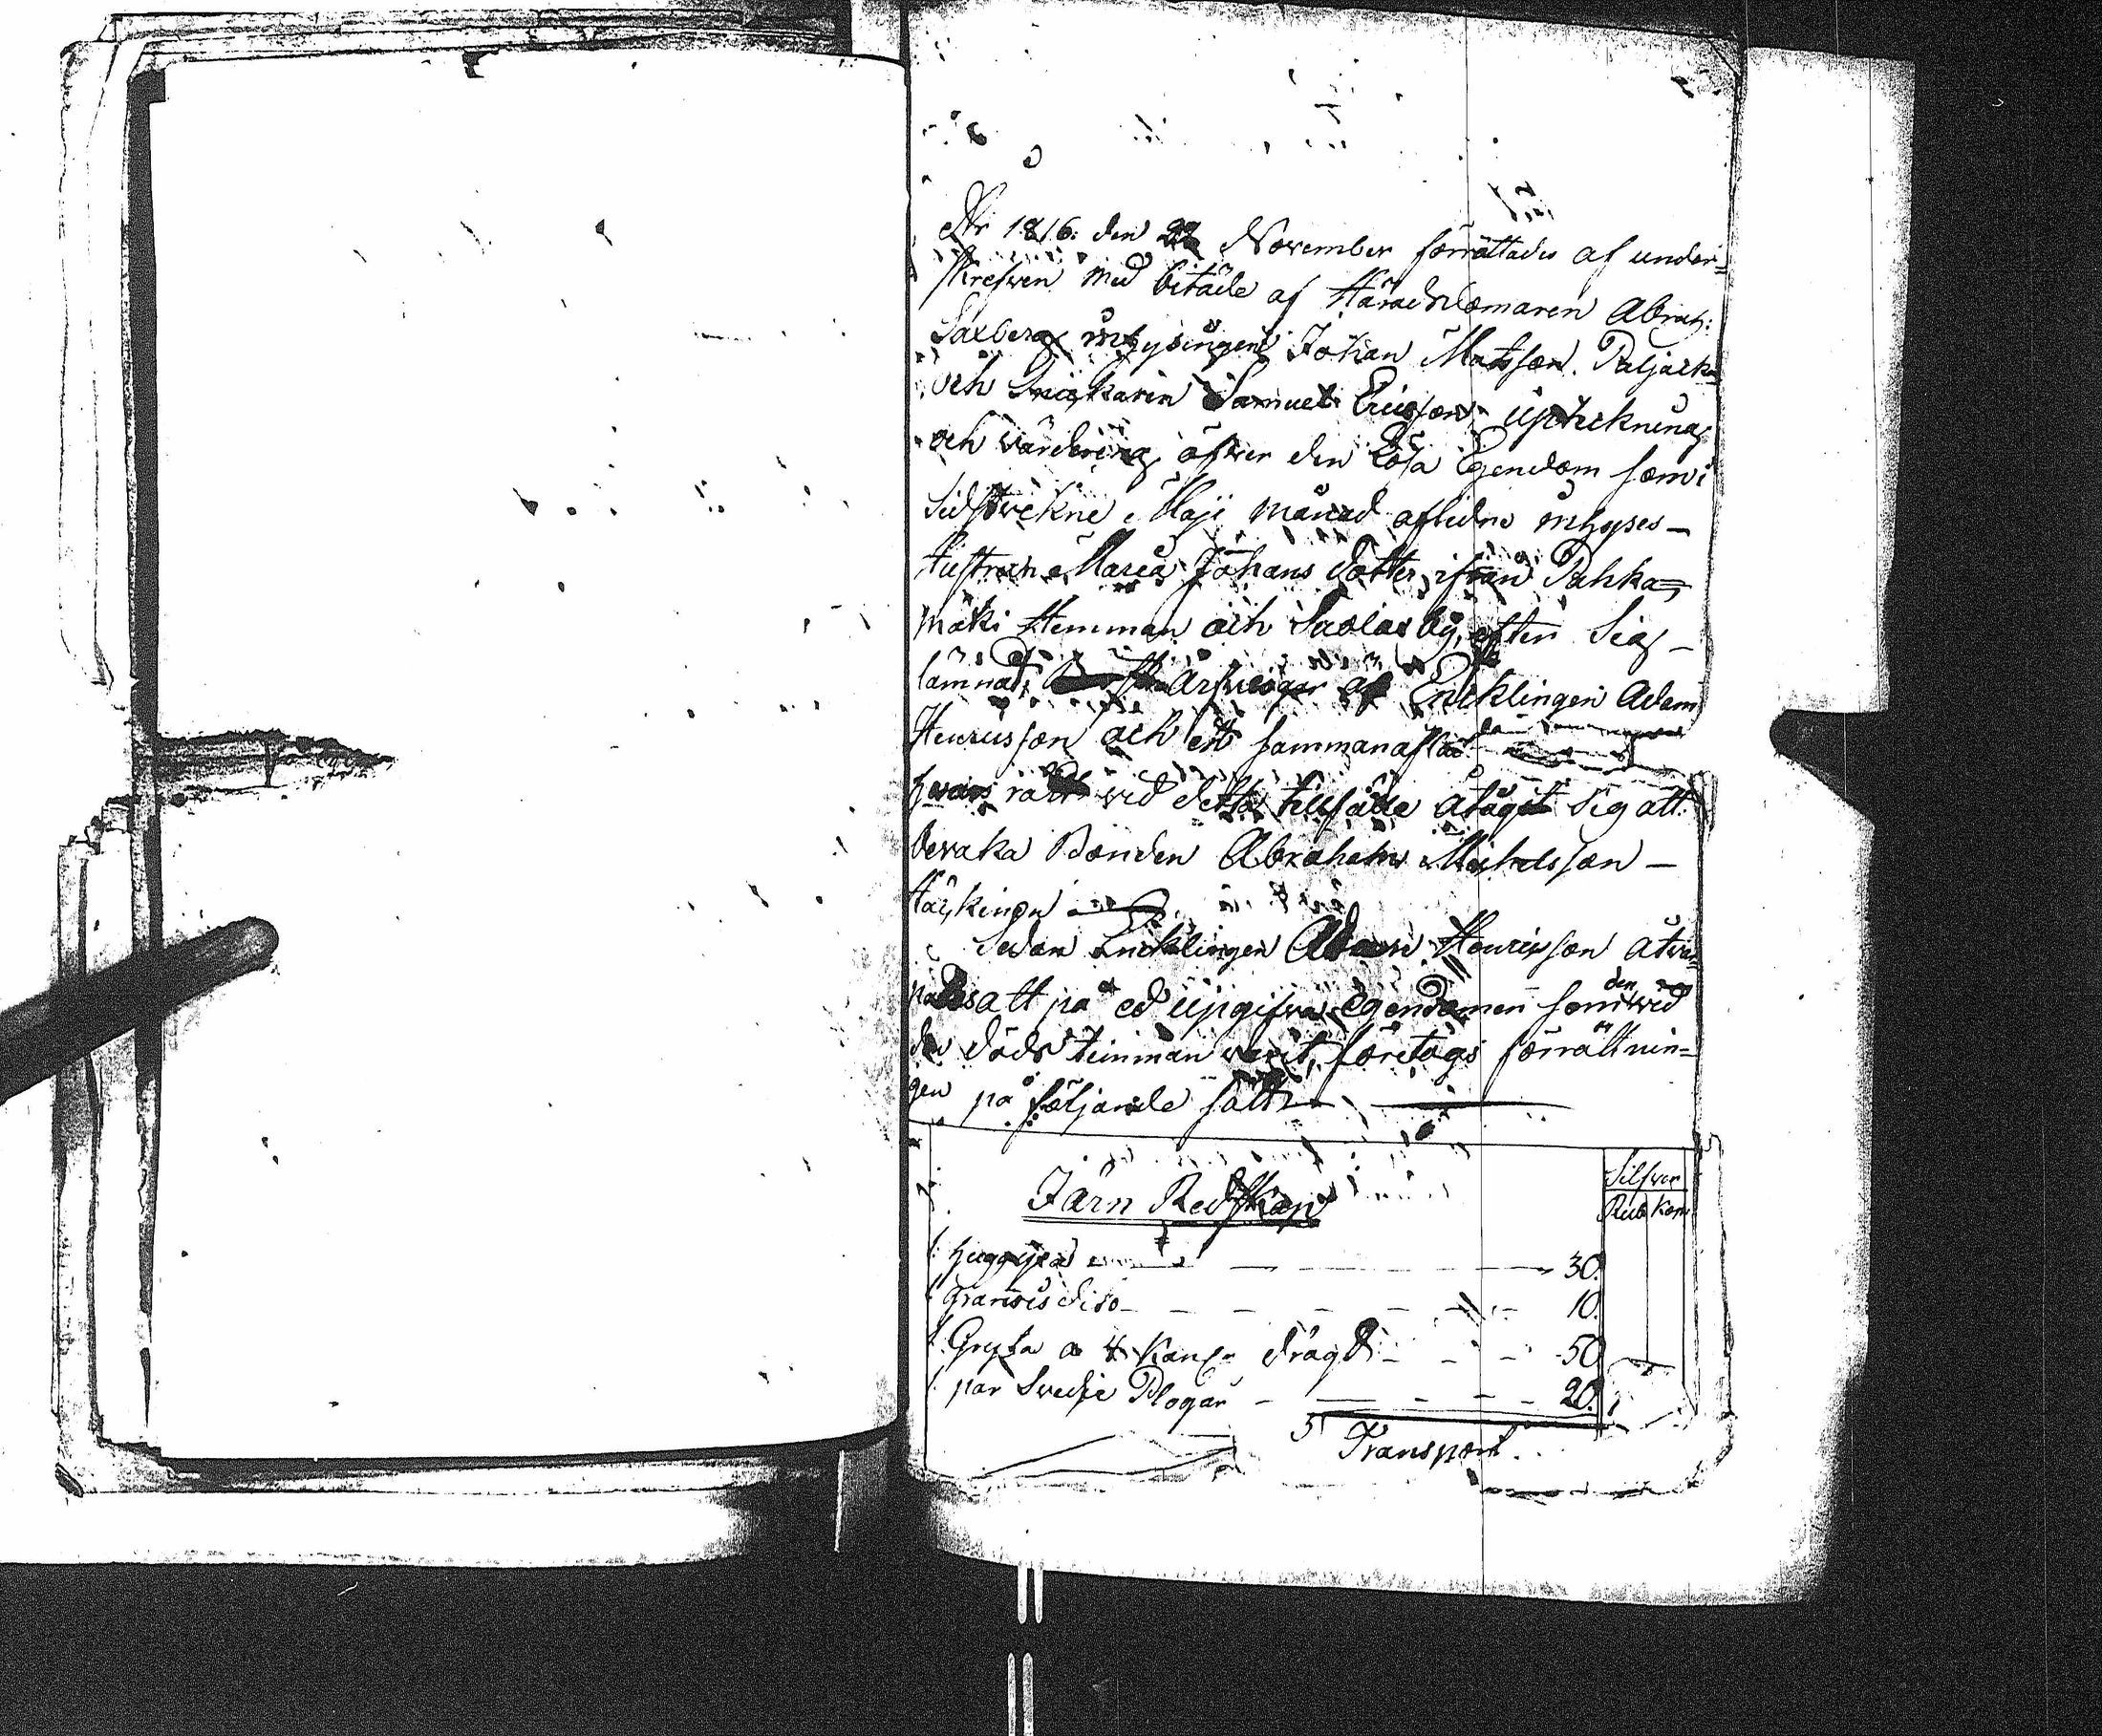 År 1816: den 22 November förrättades af under=
skrefven med biträde af Häradsdomaren Abrah:
Saxberg inhysingen Johan Matsson Paljack
och Snickaren Samuel Ericsson uptekning
och värdering öfwer den Lösa Egendom som i
sidstvekne Maji månad aflidne inhyses-
Hustrun Maria Johans dotter ifrån Pahka=
mäki Hemman och by, efter sig
lämnat Arfwingar Encklingen Adam
Henricsson och ett sammanaflat
hwars rätt wid detta tillfälle åtagit sig att
bevaka Bonden Abraham Michelsson -
Härkinen
Sedan Encklingen Adam Henricsson åtwar=
nades att på ed upgifwa Egendomen som den wid
döds timman warit, företogs förrättnin=
gen på följande sätt
Silfwer
Järn Redskap
Rub Kop
1: huggyxa 30.
1 granris dito 10.
1. Gryta a 4 Kanrs drägd 50
1. par Svedje Plogar 20.
Transport.